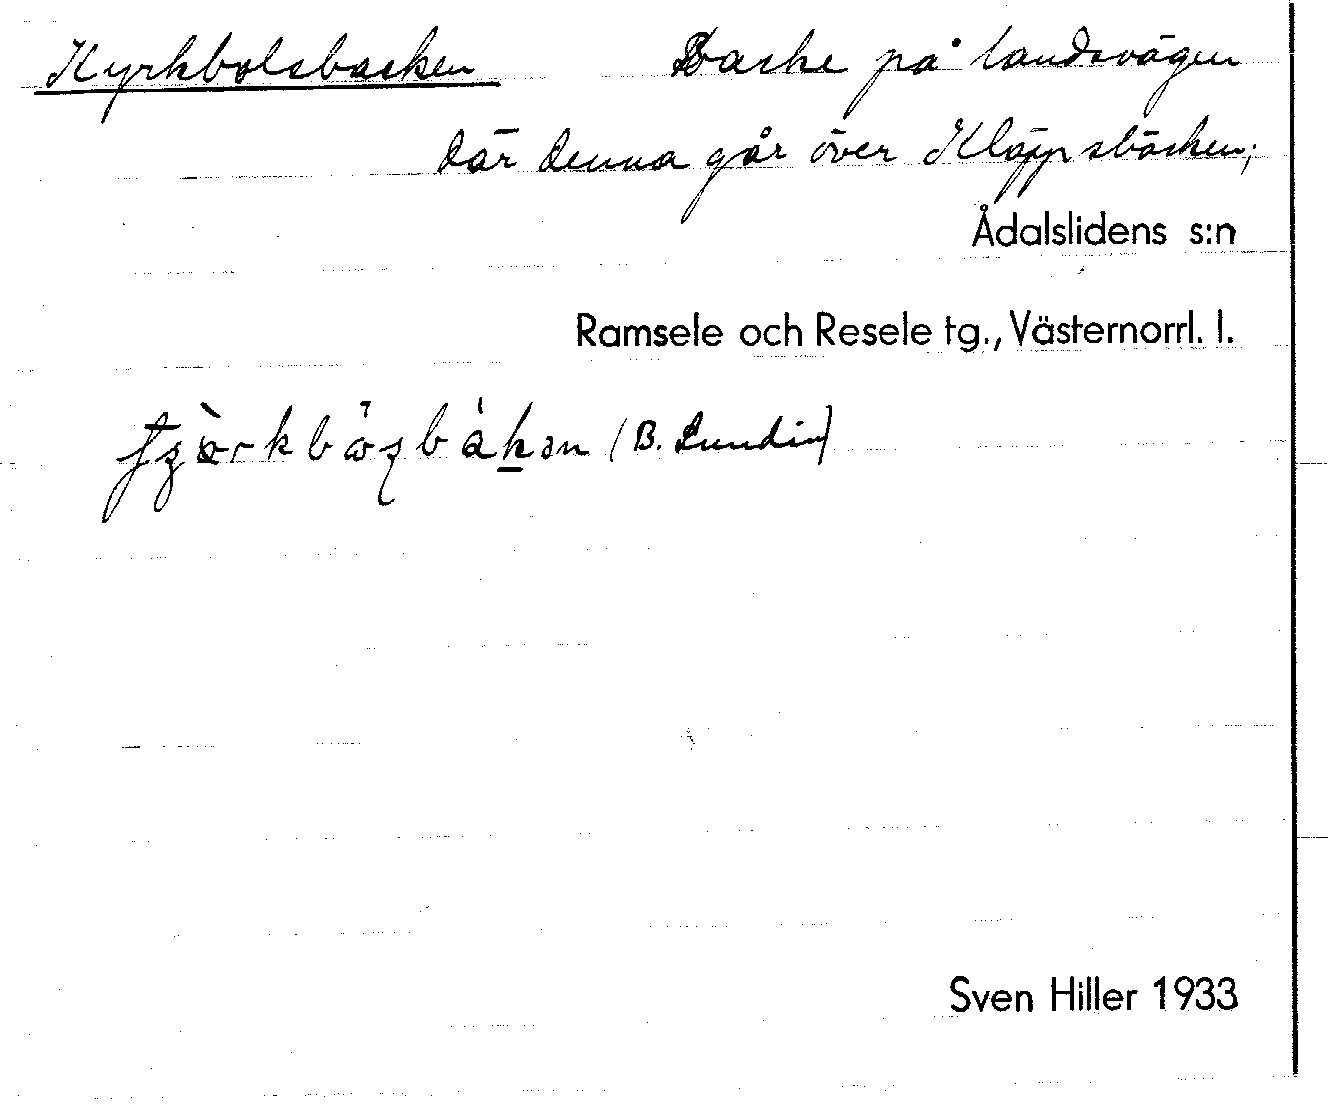 Kyrkbolsbacken Backe på landsvägen
där denna går över Kläppsbäcken;
Ådalslidens s:n
Ramsele och Resele tg., Västernorrl. l.
(B. Lundin)
Sven Hiller 1933